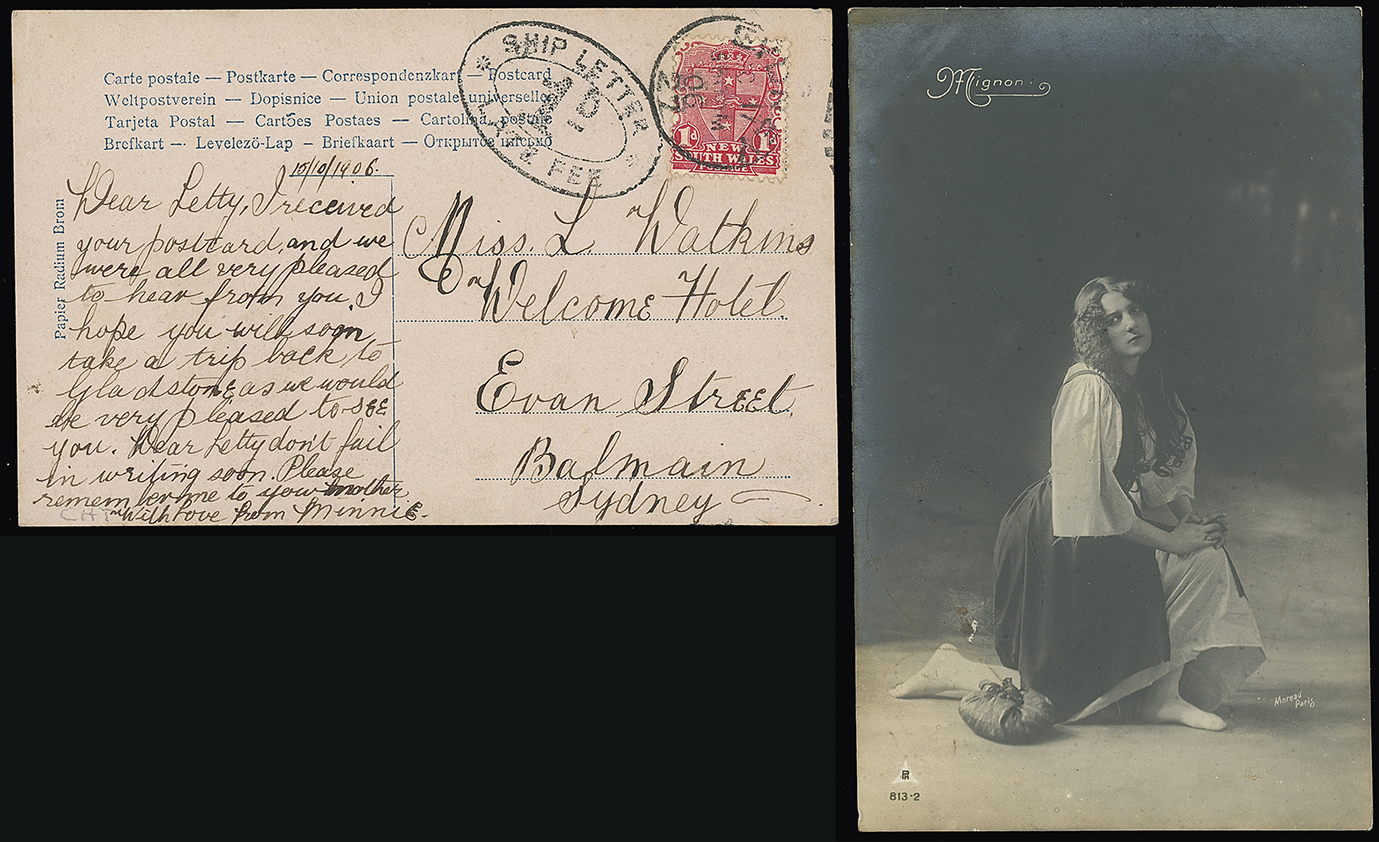 Carte postale — Postkarte — Correspondenzkart — Postcard
Weltpostverein — Dopisnice — Union postale universelle
Tarjeta Postal — Cartões Postaes — Cartolina postale
Brefkart — Levelezö-Lap — Briefkaart — Открытое письмо
Papier Radium Brom
SHIP LETTER
LATE FEE
NEW
SOUTH WALES
POSTAGE
1d 1d
10/10/1906.
Dear Letty, I received
your postcard, and we
were all very pleased
to hear from you. I
hope you will soon
take a trip back to
Gladstone as we would
be very pleased to see
you. Dear Letty don't fail
in writing soon. Please
remember me to your mother
With love from Minnie.
Miss. L. Watkins
Welcome Hotel.
Evan Street.
Balmain
Sydney
Mignon.
Moreau
Paris
813-2